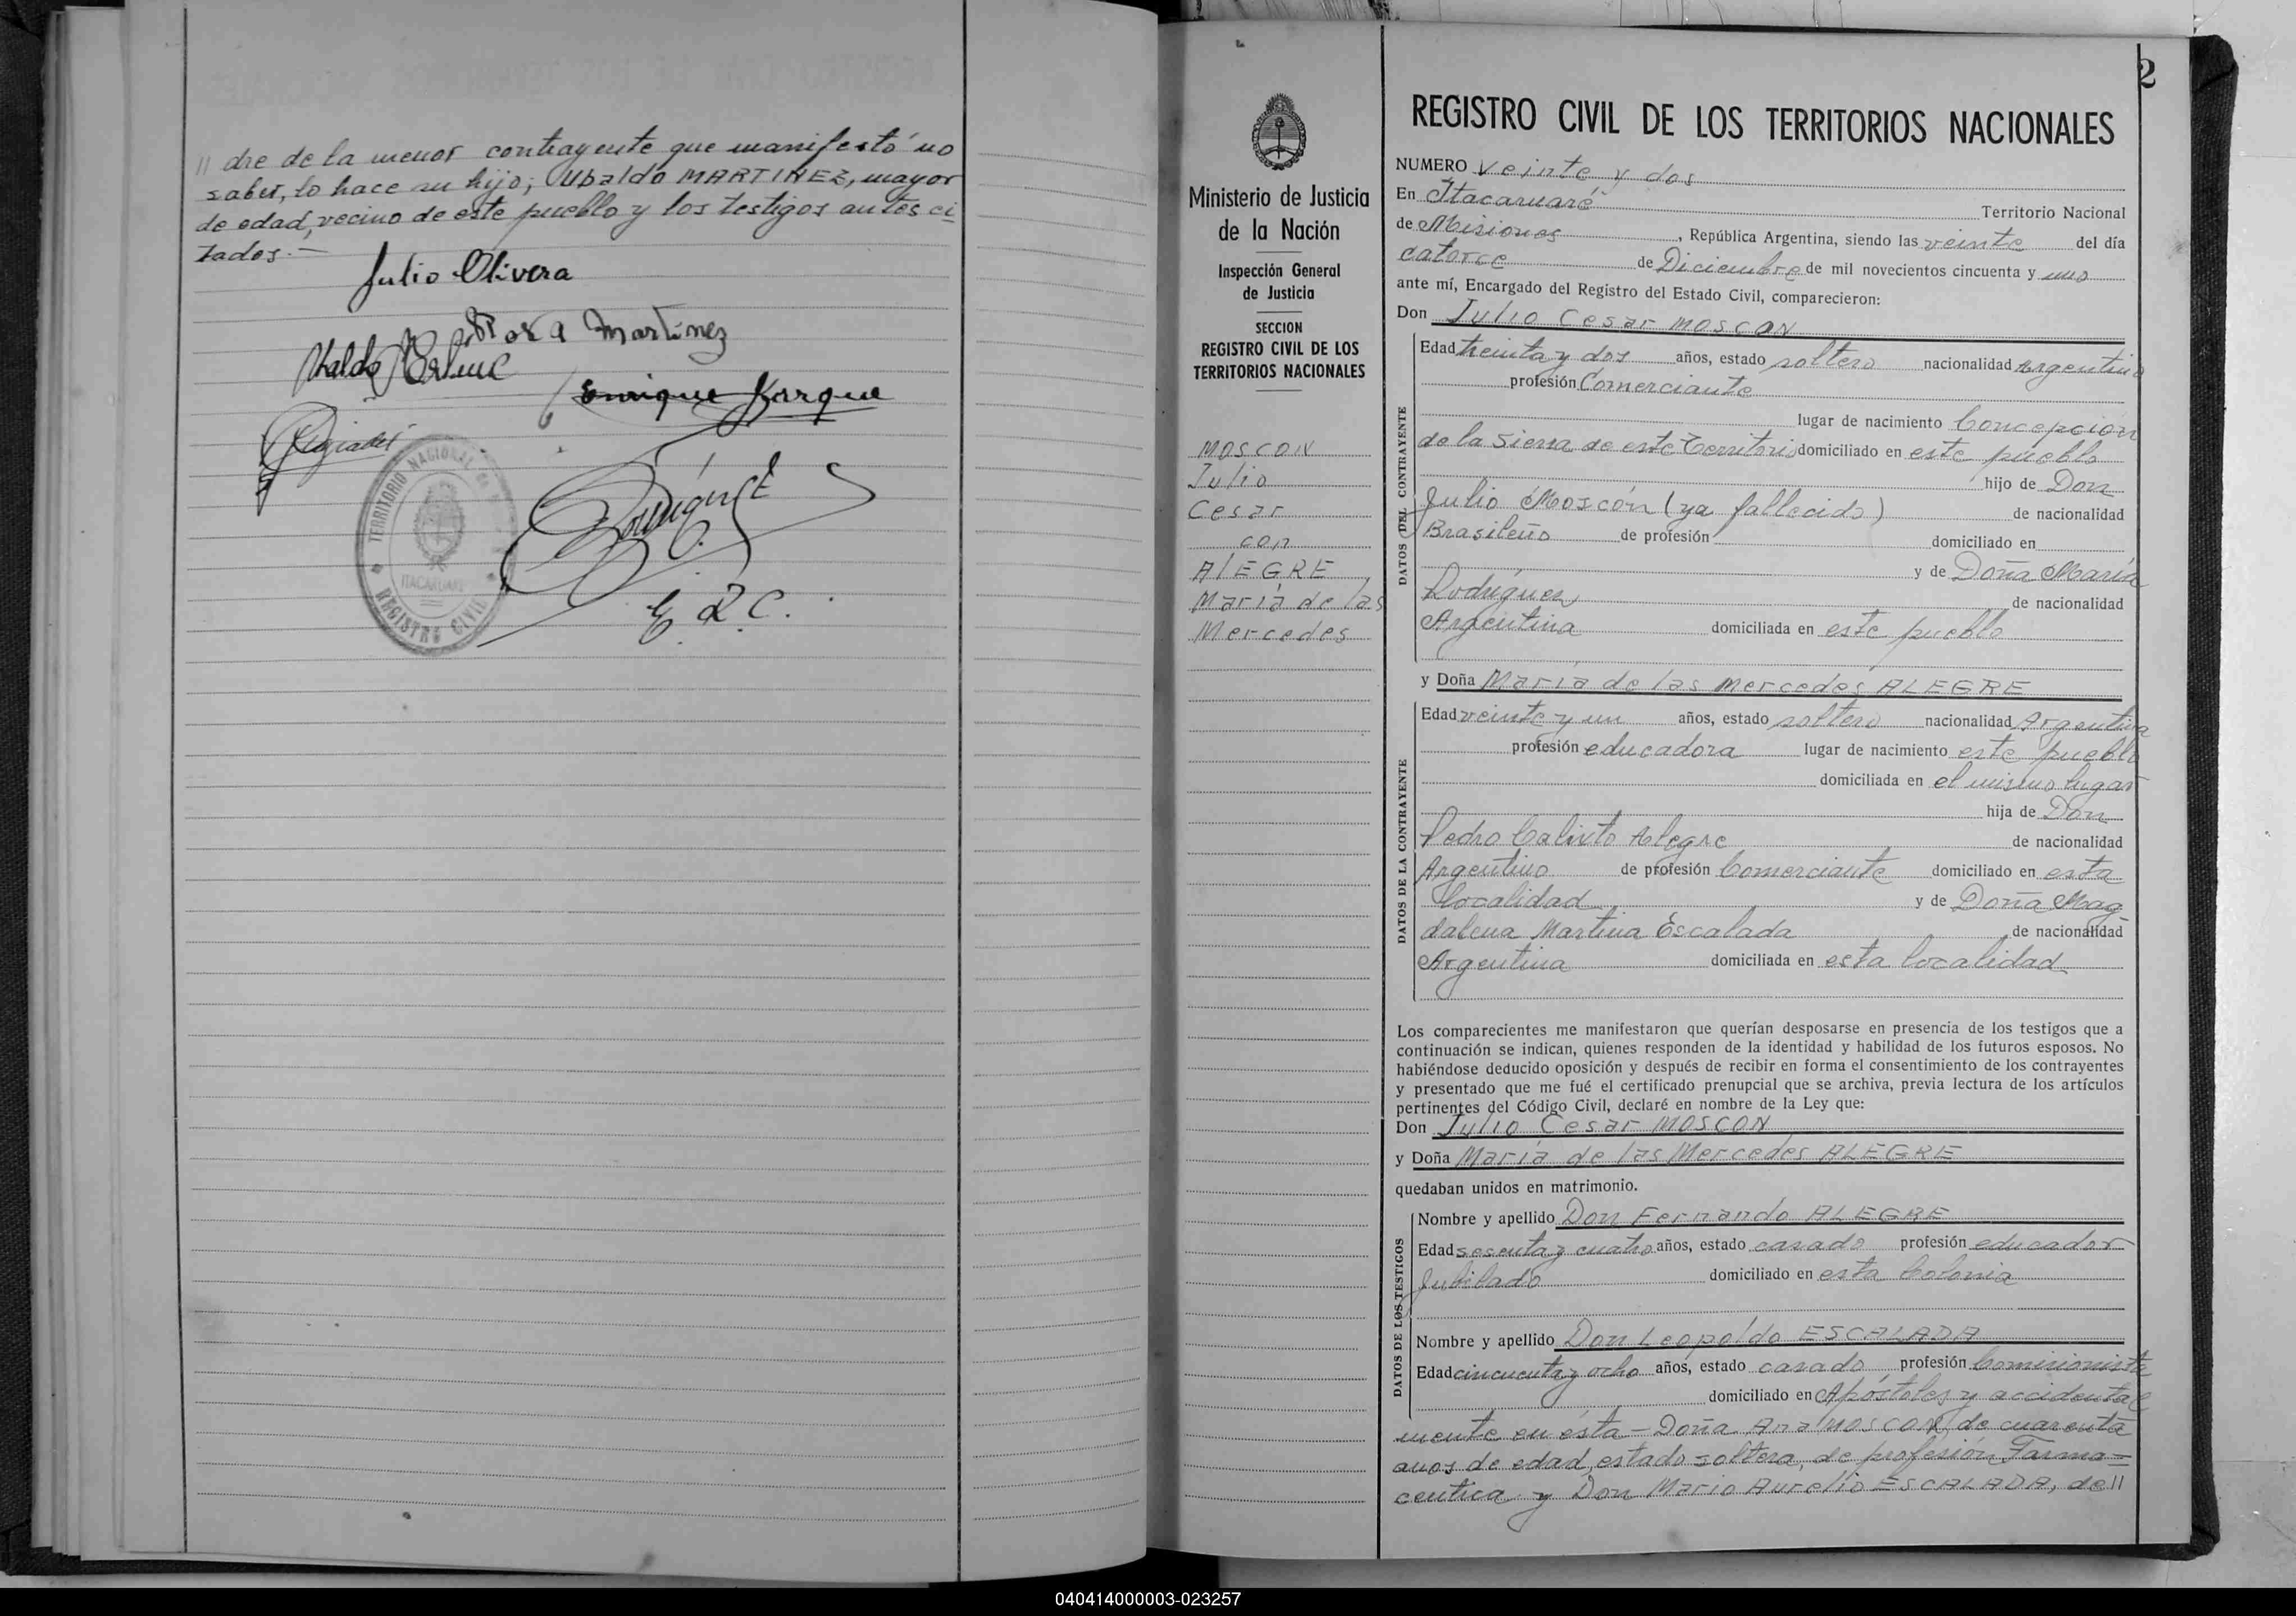 // dre de la menor contrayente que manifestó no
saber, lo hace su hijo; Ubaldo MARTINEZ, mayor
de edad, vecino de este pueblo y los testigos antes ci
tados.—
Julio Olivera
Rosa Martinez
Enrique Karque
TERRITORIO NACIONAL
ITACARUARE
REGISTRO CIVIL
E. R. C.
2
Ministerio de Justicia
de la Nación
Inspección General
de Justicia
SECCION
REGISTRO CIVIL DE LOS
TERRITORIOS NACIONALES
MOSCON
Julio
Cesar
con
AlEGRE
María de las
Mercedes
REGISTRO CIVIL DE LOS TERRITORIOS NACIONALES
NUMERO veinte y dos
En Itacaruaré Territorio Nacional
de Misiones, República Argentina, siendo las veinte del día
catorce de Diciembre de mil novecientos cincuenta y uno
ante mí, Encargado del Registro del Estado Civil, comparecieron:
Don Julio Cesar MOSCON
DATOS DEL CONTRAYENTE
Edad treinta y dos años, estado soltero nacionalidad Argentino
profesión Comerciante
lugar de nacimiento Concepción
de la Sierra de este Territorio domiciliado en este pueblo
hijo de Don
Julio Moscón (ya fallecido) de nacionalidad
Brasileño de profesión domiciliado en
y de Doña María
Rodríguez de nacionalidad
Argentina domiciliada en este pueblo
y Doña María de las Mercedes ALEGRE
DATOS DE LA CONTRAYENTE
Edad veinte y un años, estado soltero nacionalidad Argentina
profesión educadora lugar de nacimiento este pueblo
domiciliada en el mismo lugar
hija de Don
Pedro Calixto Alegre de nacionalidad
Argentino de profesión Comerciante domiciliado en esta
localidad y de Doña Mag
dalena Martina Escalada de nacionalidad
Argentina domiciliada en esta localidad
Los comparecientes me manifestaron que querían desposarse en presencia de los testigos que a
continuación se indican, quienes responden de la identidad y habilidad de los futuros esposos. No
habiéndose deducido oposición y después de recibir en forma el consentimiento de los contrayentes
y presentado que me fué el certificado prenupcial que se archiva, previa lectura de los artículos
pertinentes del Código Civil, declaré en nombre de la Ley que:
Don Julio Cesar MOSCON
y Doña María de las Mercedes ALEGRE
quedaban unidos en matrimonio.
DATOS DE LOS TESTIGOS
Nombre y apellido Don Fernando ALEGRE
Edad sesenta y cuatro años, estado casado profesión educador
Jubilado domiciliado en esta Colonia
Nombre y apellido Don Leopoldo ESCALADA
Edad cincuenta y ocho años, estado casado profesión Comisionista
domiciliado en Apóstoles y accidental
mente en ésta — Doña Ana MOSCON, de cuarenta
anos de edad, estado soltera, de profesión Farma=
ceutica y Don Mario Aurelio ESCALADA, de //
040414000003-023257